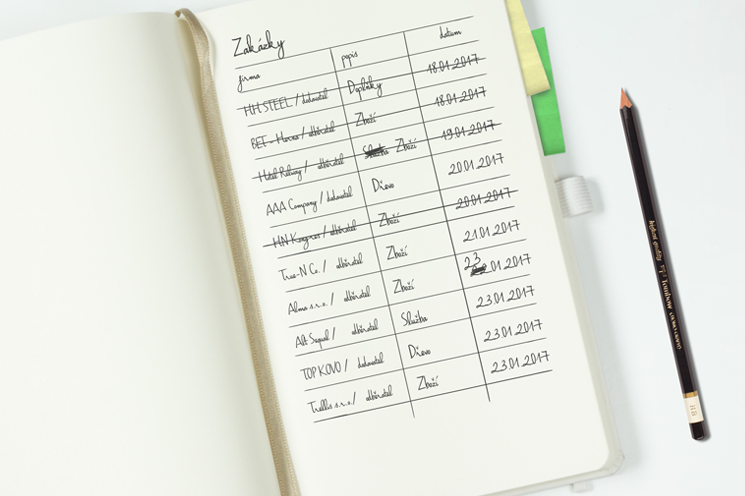 Zakázky
firma popis datum
HH STEEL / dodavatel Doplňky 18.01.2017
BET - Horna / odběratel Zboží 18.01.2017
Hotel Railway / odběratel Služba Zboží 19.01.2017
AAA Company / dodavatel Dřevo 20.01.2017
HN Kongres / odběratel Zboží 20.01.2017
True-N Co. / odběratel Zboží 21.01.2017
Alma s.r.o. / odběratel Zboží 23.01.2017
Alt Sequel / odběratel Služba 23.01.2017
TOP KOVO / dodavatel Dřevo 23.01.2017
Trellis s.r.o. / odběratel Zboží 23.01.2017
Tombow
HB